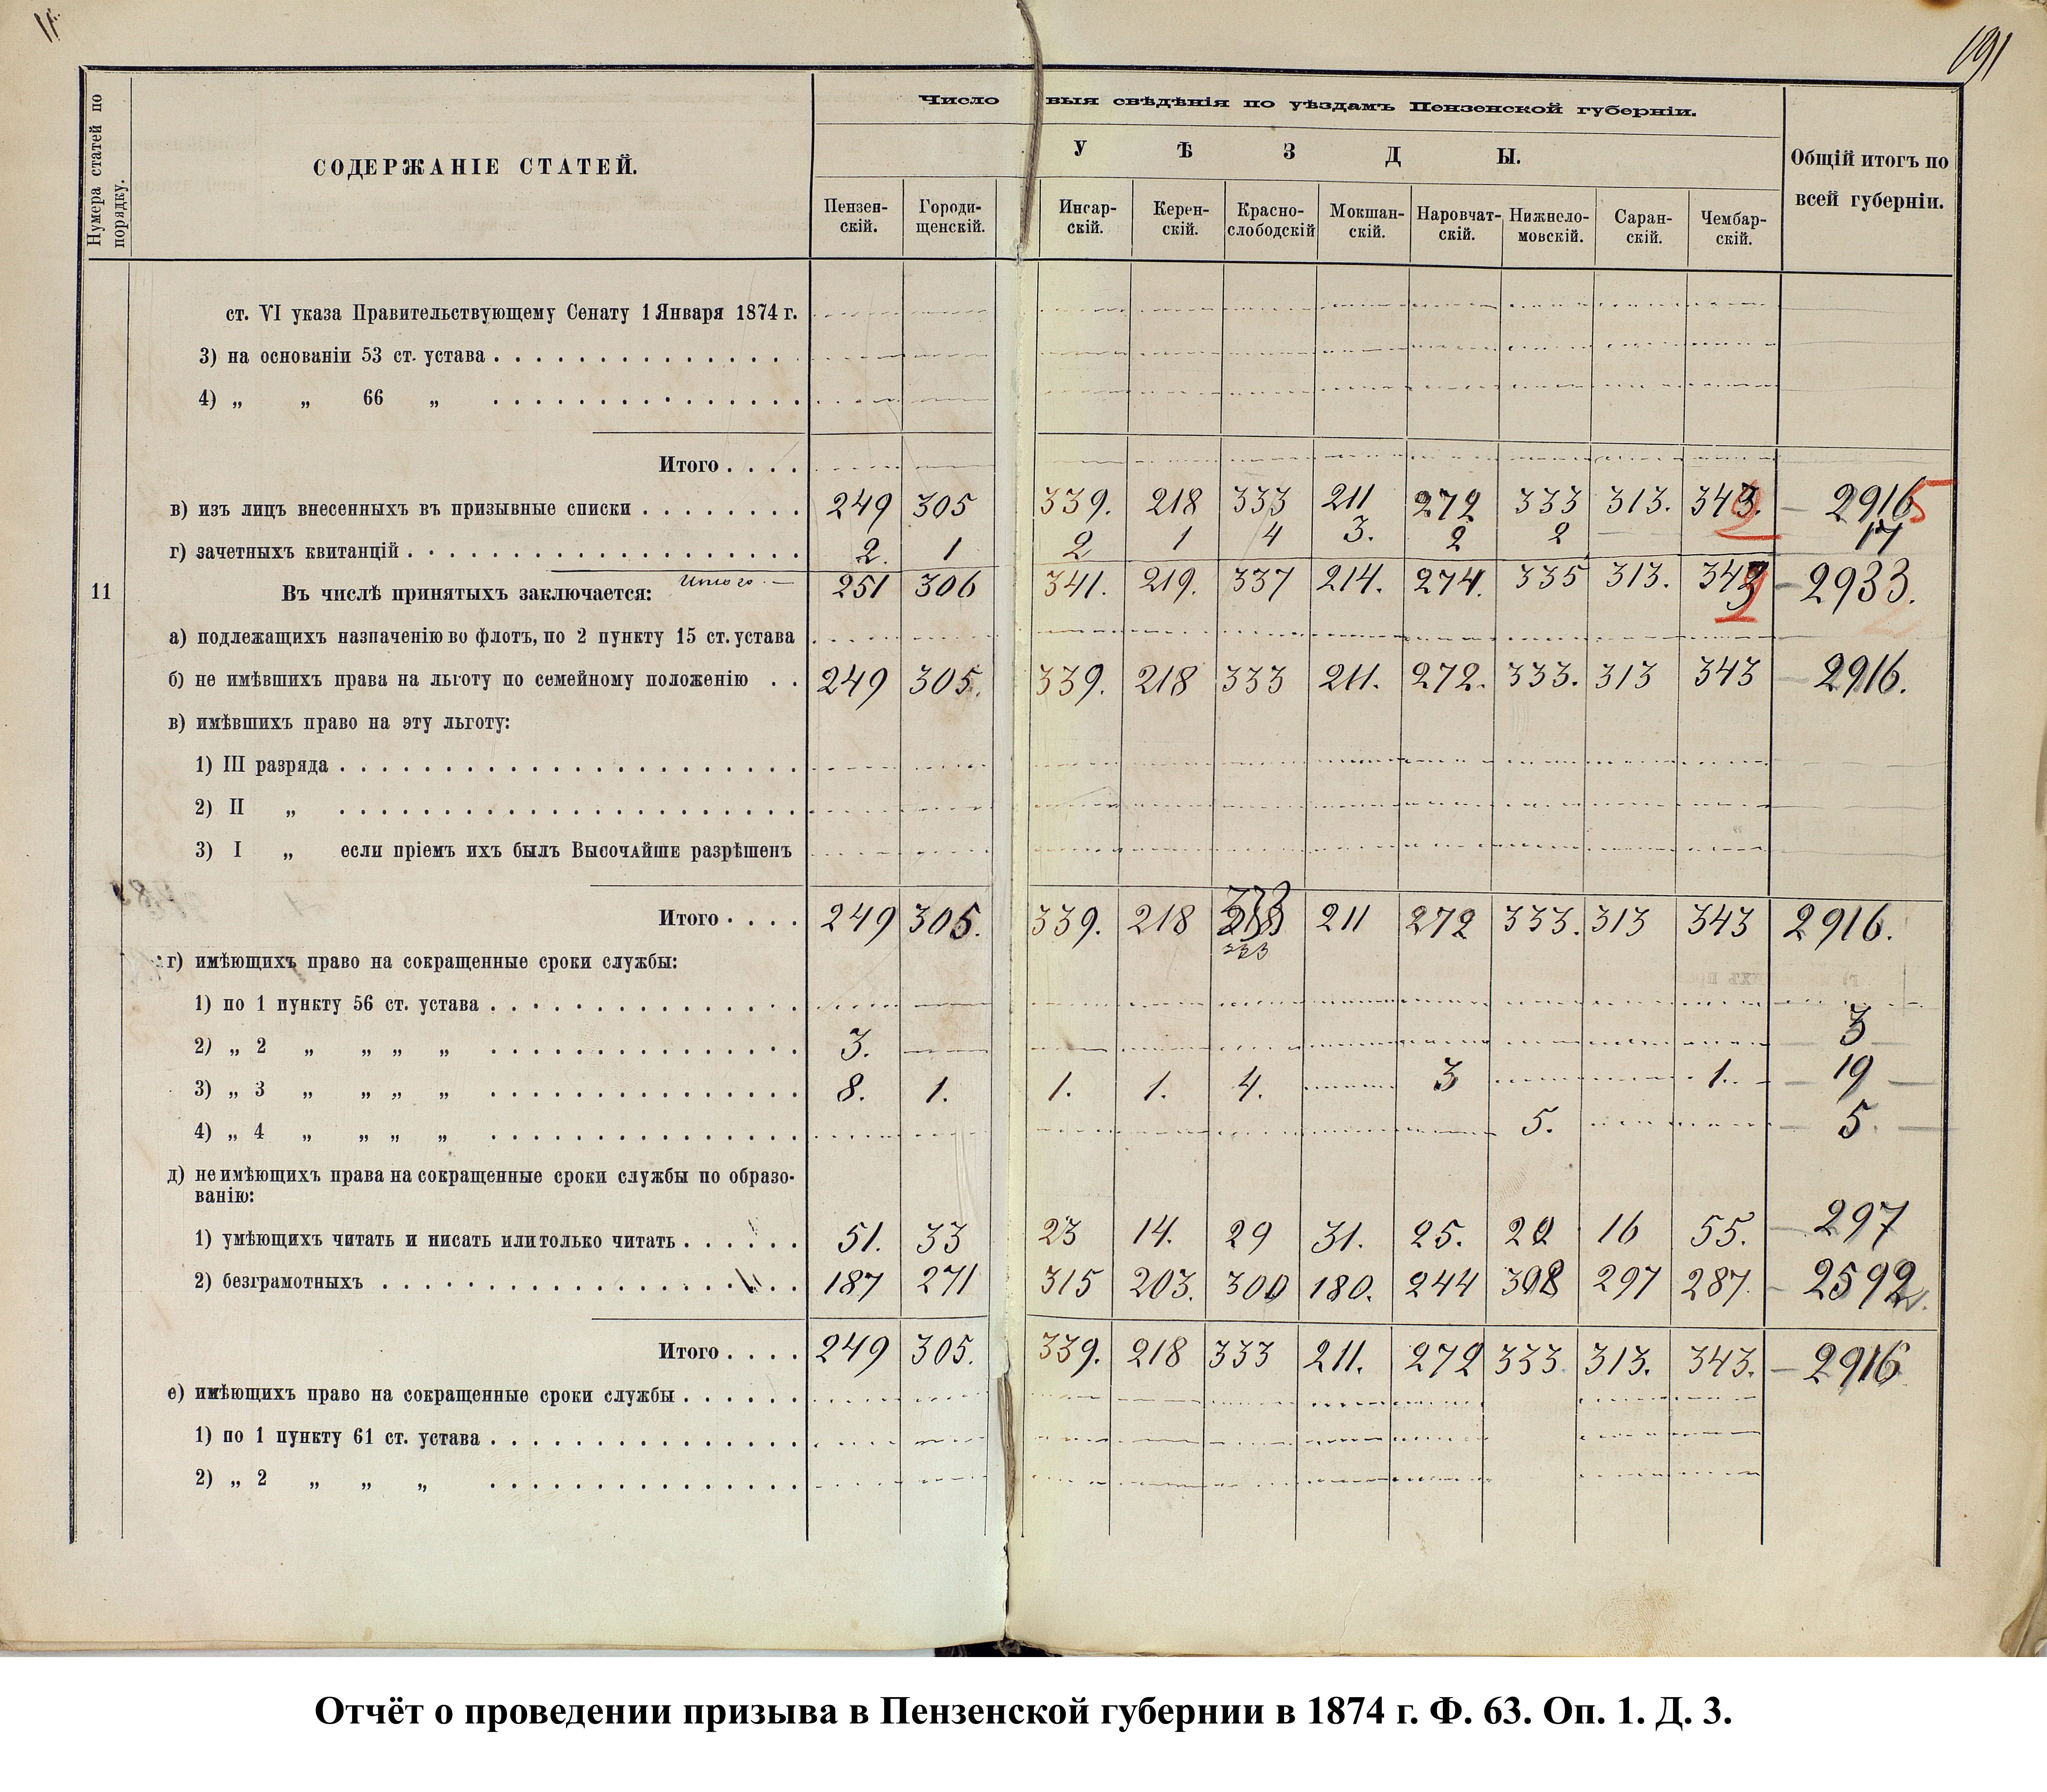 191
Нумера статей по порядку.
СОДЕРЖАНІЕ СТАТЕЙ.
Число выя свѣдѣнія по уѣздамъ Пензенской губерніи.
У Ѣ З Д Ы.
Общій итогъ по всей губерніи.
Пензен-скій. Городи-щенскій. Инсар-скій. Керен-скій. Красно-слободскій Мокшан-скій. Наровчат-скій. Нижнело-мовскій. Саран-скій. Чембар-скій.
ст. VI указа Правительствующему Сенату 1 Января 1874 г.
3) на основаніи 53 ст. устава
4) „ „ 66 „
Итого
в) изъ лицъ внесенныхъ въ призывные списки 249 305 339. 218 333 211 272 333 313. 343. 2916
г) зачетныхъ квитанцій 2. 1 2 1 4 3. 2 2 17
Итого 251 306 341. 219. 337 214. 274. 335 313. 343 2933.
11 Въ числѣ принятыхъ заключается:
а) подлежащихъ назначенію во флотъ, по 2 пункту 15 ст. устава
б) не имѣвшихъ права на льготу по семейному положенію 249 305. 339. 218 333 211. 272. 333. 313 343 2916.
в) имѣвшихъ право на эту льготу:
1) III разряда
2) II „
3) I „ если пріемъ ихъ былъ Высочайше разрѣшенъ
Итого 249 305. 339. 218 333 211 272 333. 313 343 2916.
г) имѣющихъ право на сокращенные сроки службы:
1) по 1 пункту 56 ст. устава
2) „ 2 „ „ „ „ 3. 3
3) „ 3 „ „ „ „ 8. 1. 1. 1. 4. 3 1. 19
4) „ 4 „ „ „ „ 5. 5
д) не имѣющихъ права на сокращенные сроки службы по образо-
ванію:
1) умѣющихъ читать и писать или только читать 51. 33 23 14. 29 31. 25. 20 16 55. 297
2) безграмотныхъ 187 271 315 203. 300 180. 244 308 297 287. 2592
Итого 249 305. 339. 218 333 211. 272 333 313. 343. 2916
е) имѣющихъ право на сокращенные сроки службы
1) по 1 пункту 61 ст. устава
2) „ 2 „ „ „
Отчёт о проведении призыва в Пензенской губернии в 1874 г. Ф. 63. Оп. 1. Д. 3.